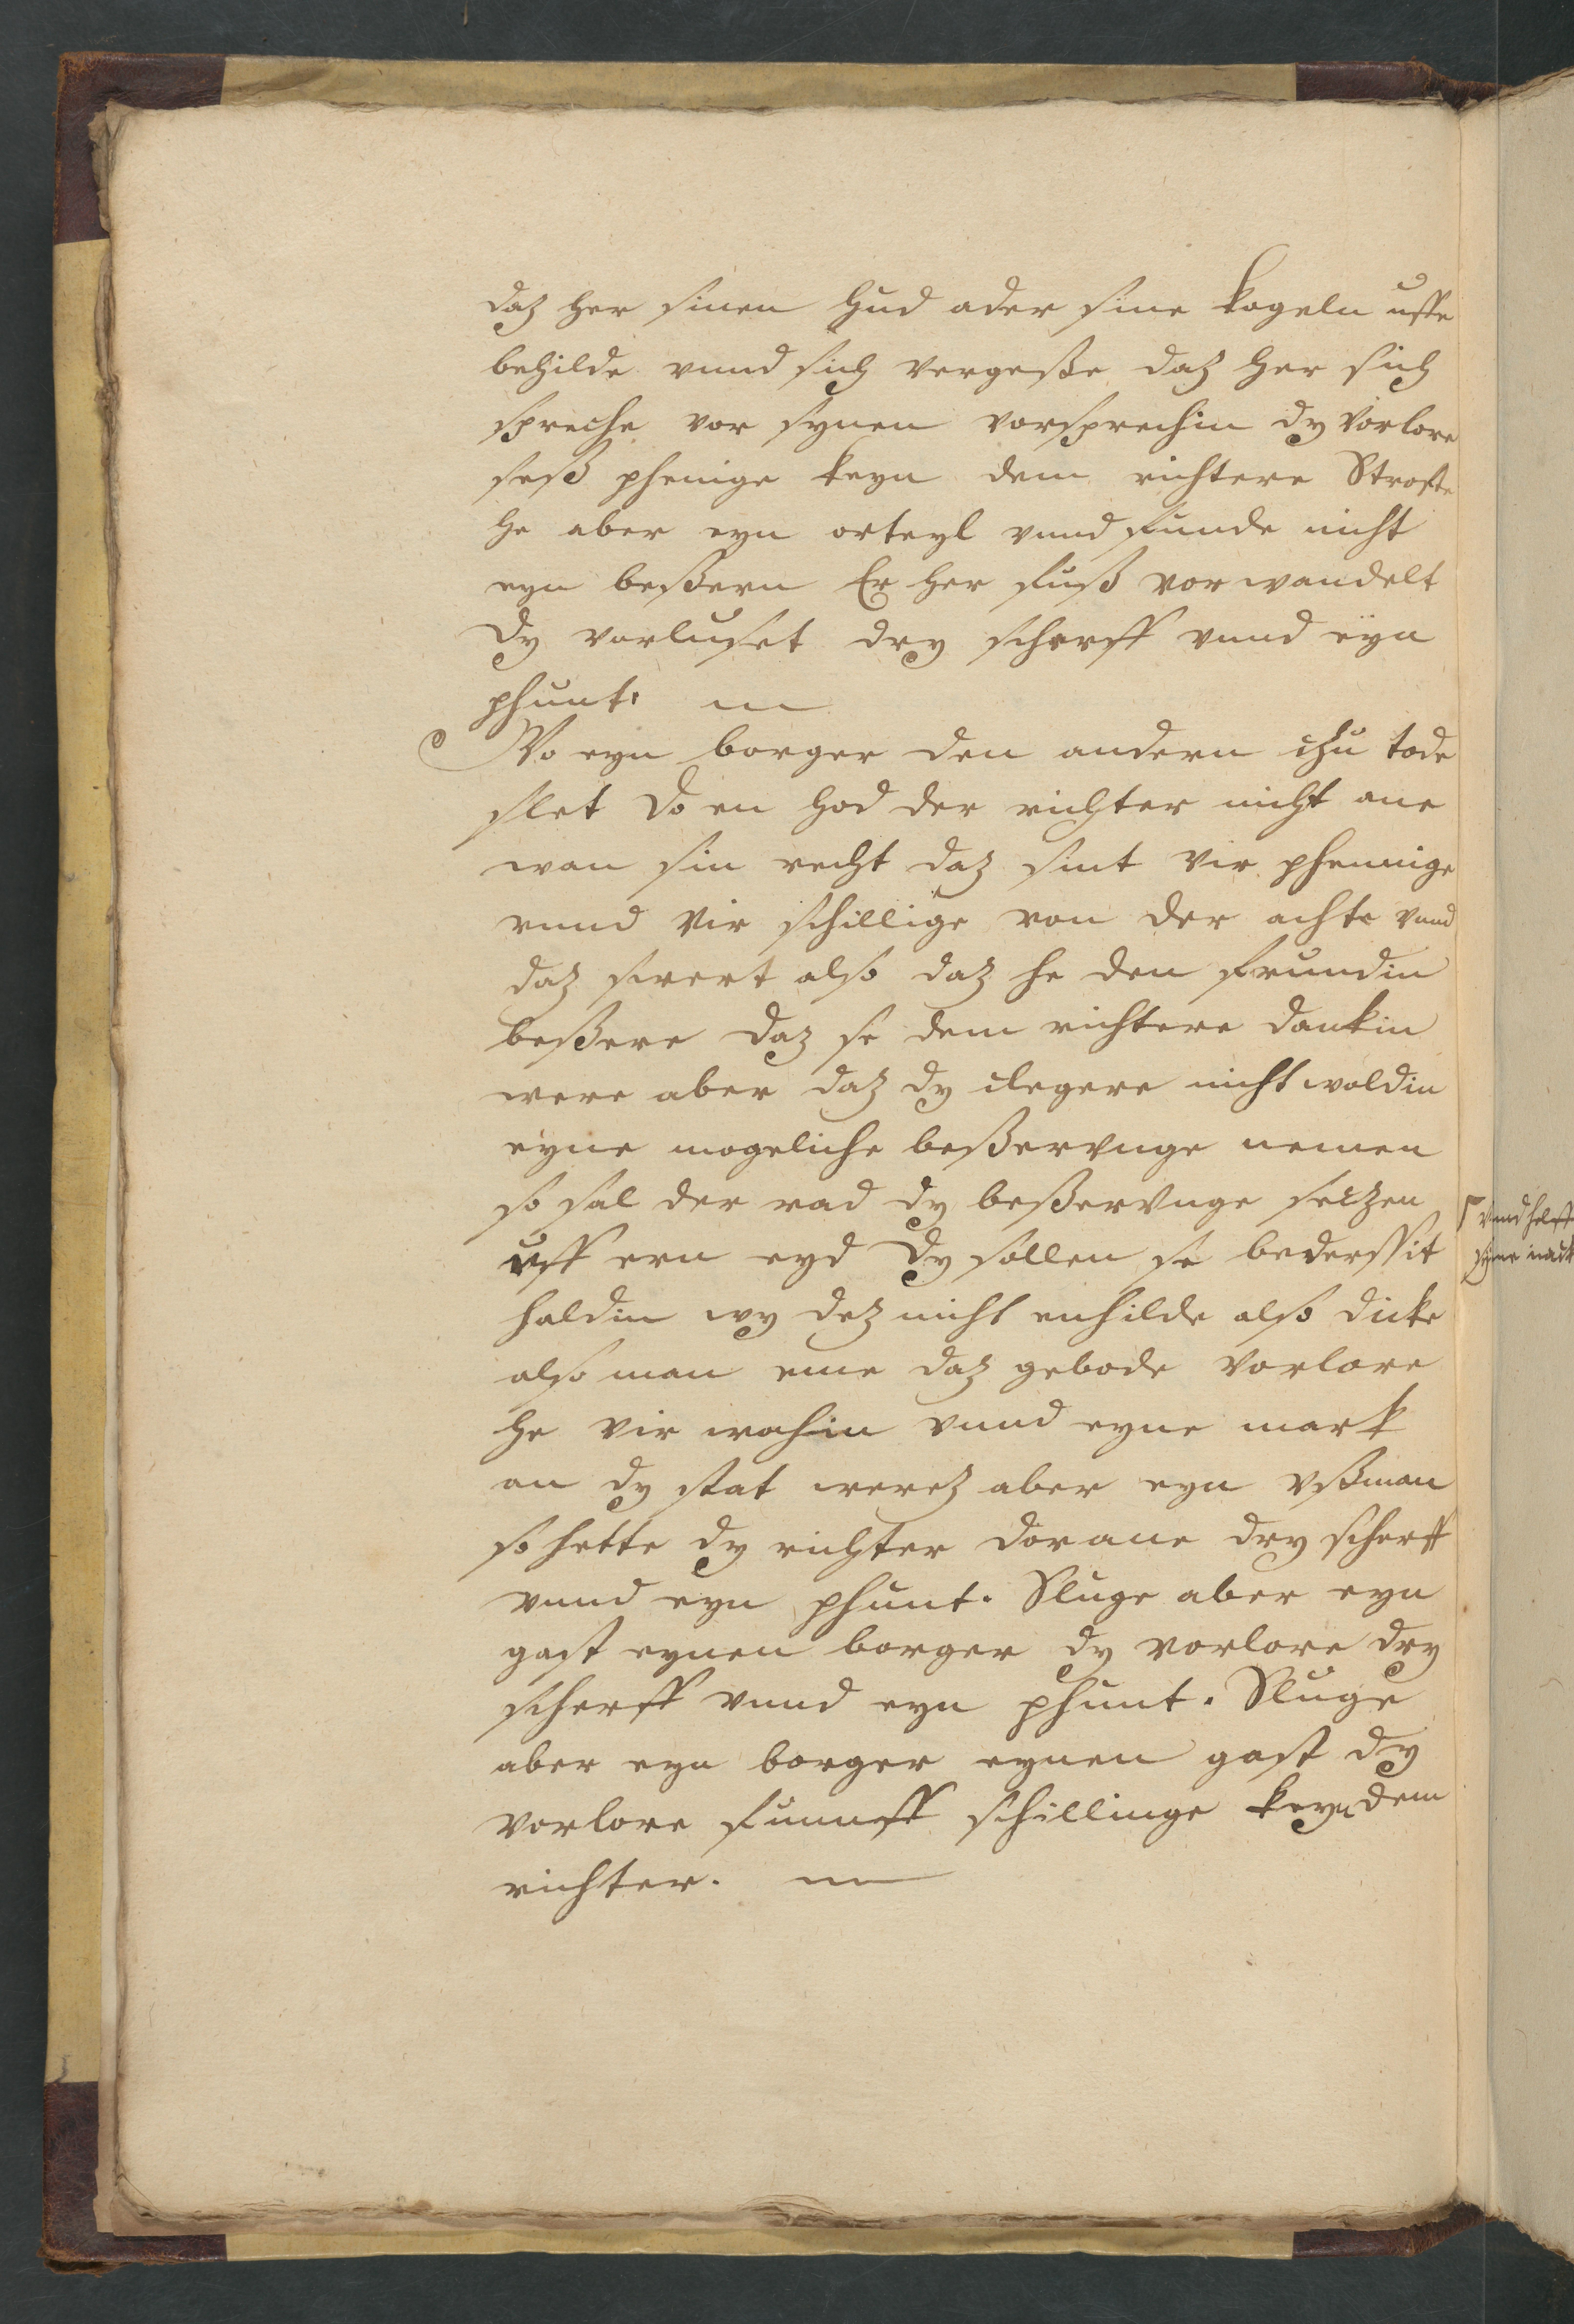 daz her sinen hud ader sine kogeln uffe
behilde vnnd sich vergeße daz her sich
spreche vor synen vorsprechin dy vorlore
seß phenige keyn dem richtere Strofte
he aber eyn orteyl vnnd funde nicht
eyn beßern Er her fuß vor wandelt
Dy vorluset dry scherff vnnd eyn
phunt.
Wo eyn borger den andern czu tode
slet Do en hod der richter nicht ane
wan sin recht daz sint vir phennige
vnnd vir schillige von der achte vnnd
daz swert also daz he den frundin
beßere daz se dem richtere dankin
were aber daz dy clegere nicht woldin
eyne mogeliche beßervnge nemen
so sal der rad dy beßervnge seczen
uff ern eyd Dy sollen se bedersit
haldin wy dez nicht enhilde also dicke
also man eme daz gebode vorlore
he vir wochin vnnd eyne mark
an dy stat werez aber eyn vßman
so hette dy richter dorane dry scherff
vnnd eyn phunt. Sluge aber eyn
gast eynen borger dy vorlore dry
scherff vnnd eyn phunt. Sluge
aber eyn borger eynen gast dy
vorlore funff schillinge keyn dem
richter.
vnnd